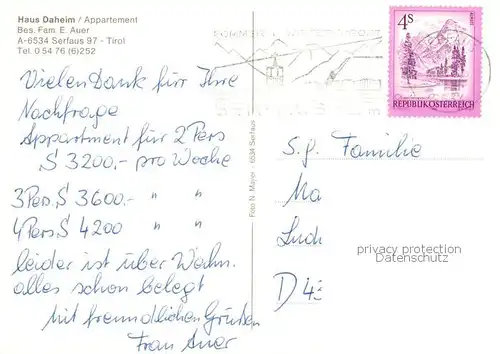 Haus Daheim / Appartement
Bes. Fam. E. Auer
A-6534 Serfaus 97 - Tirol
Tel. 0 54 76 (6) 252
Vielen Dank für Ihre
Nachfrage
Appartment für 2 Pers
S 3200.- pro Woche
3 Pers. S 3600.- " "
4 Pers. S 4200 " "
leider ist über Weihn.
alles schon belegt
Mit freundlichen Grüßen
Frau Auer
Foto N. Mayer - 6534 Serfaus
4S
REPUBLIK ÖSTERREICH
S.g. Familie
Ma
D 4
privacy protection
Datenschutz